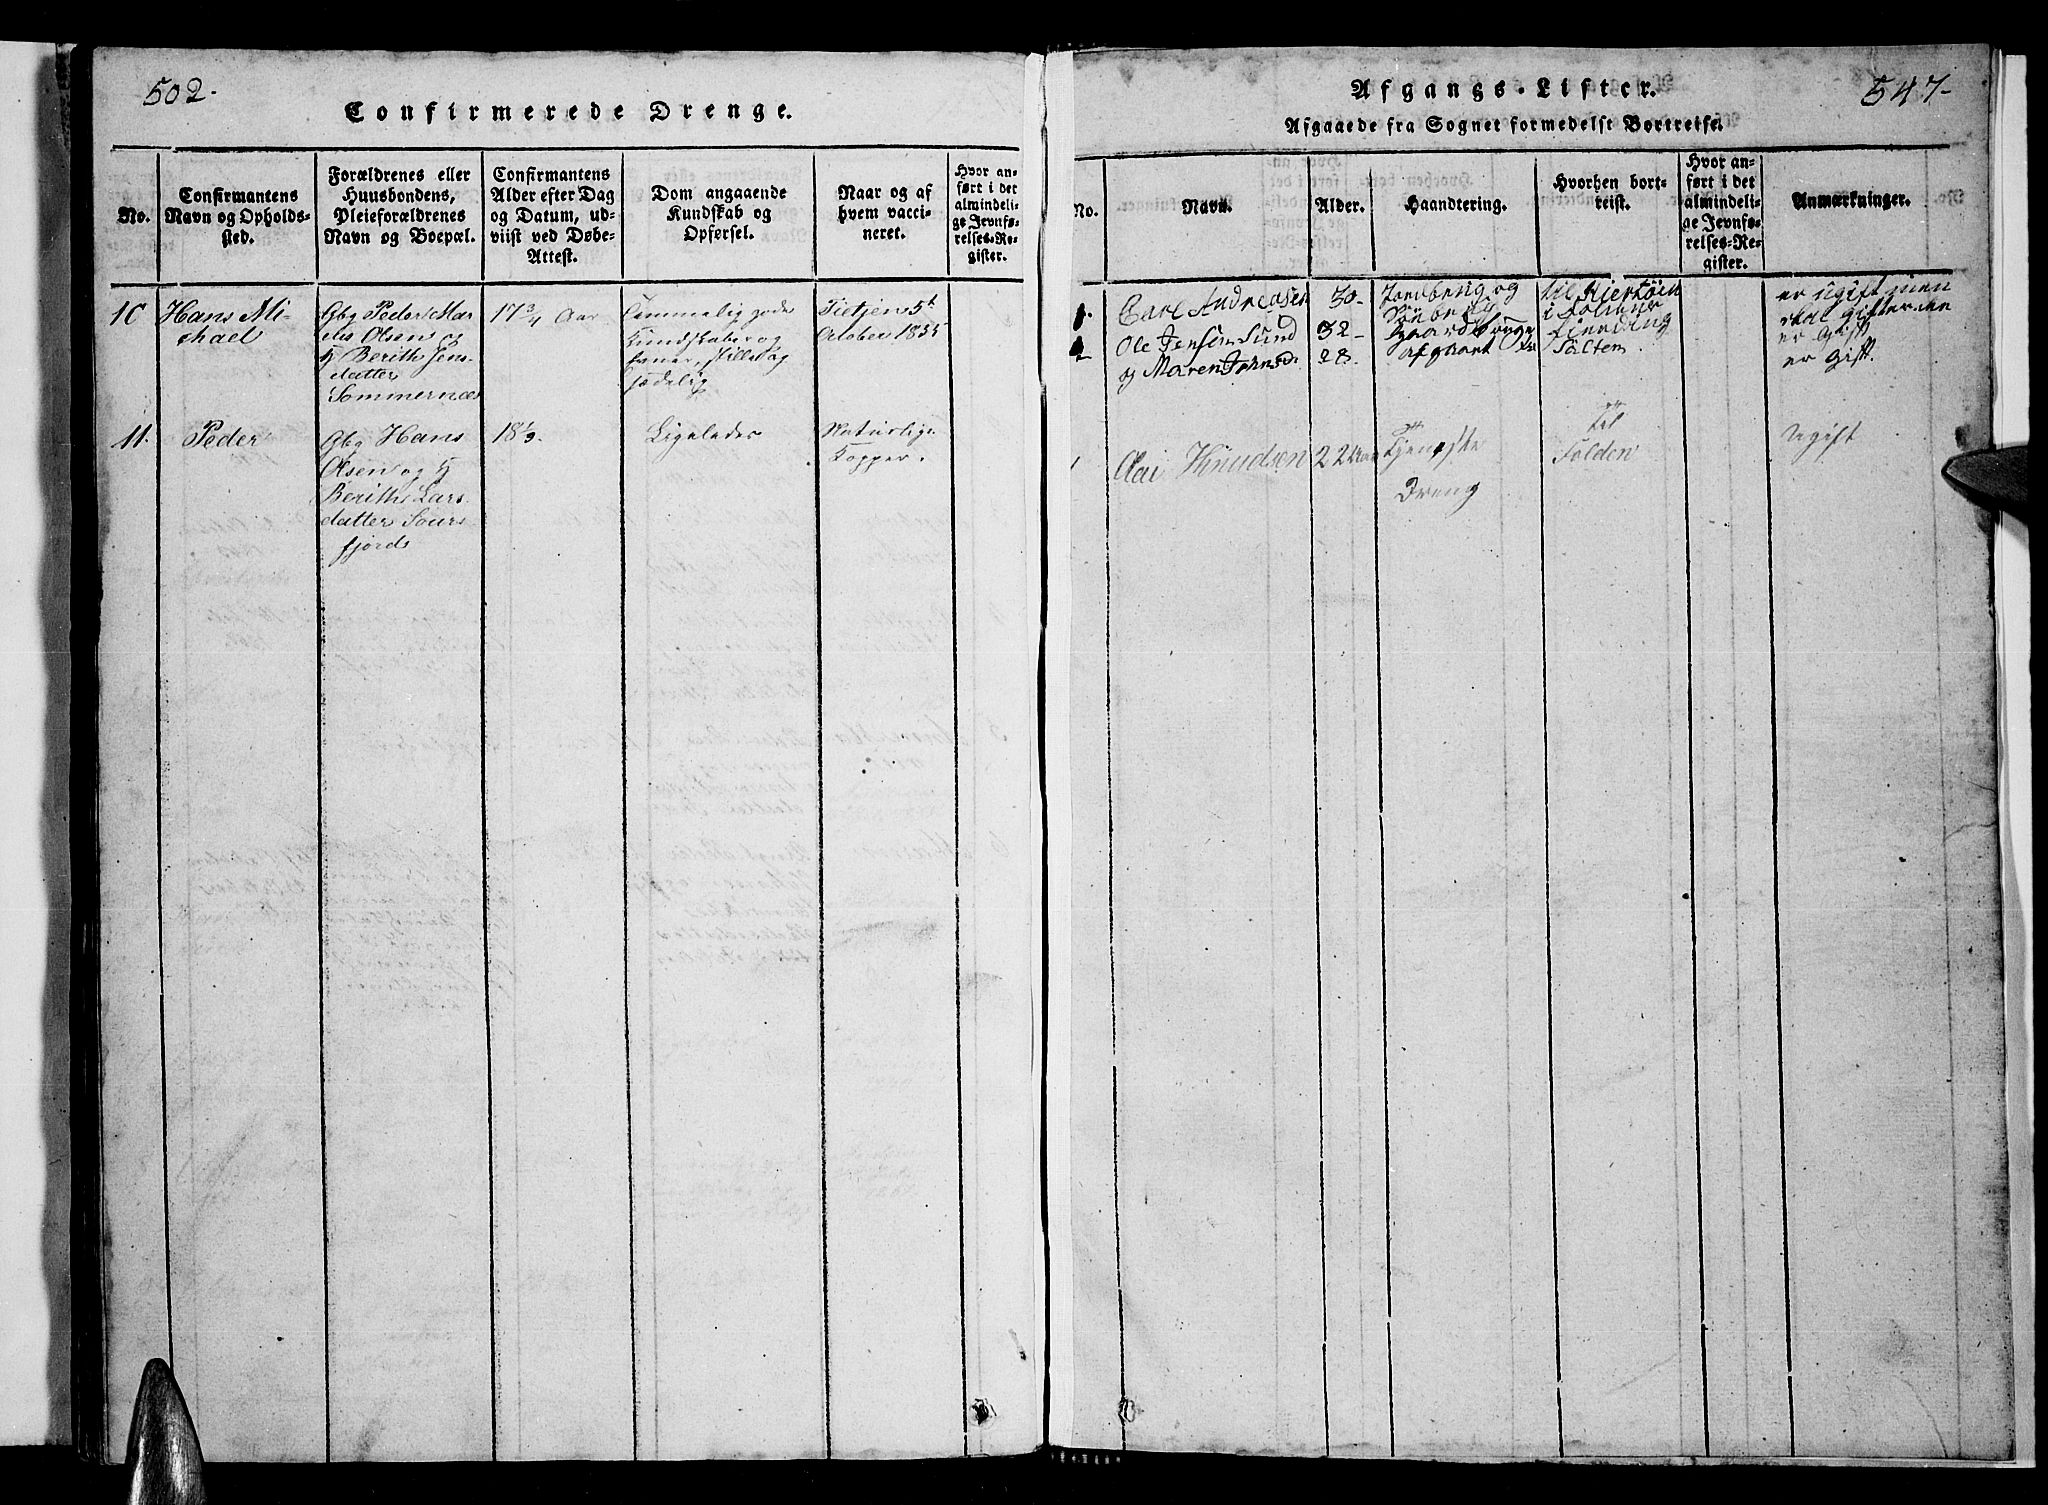 502.
Confirmerede Drenge.
No.
Confirmantens
Navn og Opholds-
sted.
Forældrenes eller
Huusbondens,
Pleieforældrenes
Navn og Boepæl.
Confirmantens
Alder efter Dag
og Datum, ud-
viist ved Døbe-
Attest.
Dom angaaende
Kundskab og
Opførsel.
Naar og af
hvem vacci-
neret.
Hvor an-
ført i det
almindeli-
ge Jevnfø-
relses-Re-
gister.
10
Hans Mi-
chael
Gbg Peder Ma-
rius Olsen og
H Berithe Jens-
datter
Sommernæs
17 3/4 Aar
Temmelig gode
Kundskaber og
skikkelig
Tietjen 5t
October 1835
11.
Peder
Gbg Hans
Olsen og H
Berithe Lars
datter Sørs
fjord
18 1/2.
Ligeledes
Naturlige
Kopper.
547-
Afgangs-Lister.
Afgaaede fra Sognet formedelst Bortreise.
No.
Navn.
Alder.
Haandtering.
Hvorhen bort-
reist.
Hvor an-
ført i det
almindeli-
ge Jevnfø-
relses-Re-
gister.
Anmærkninger.
1.
Carl Andreasen
30-
Jordbrug og
til Kjertøen
i Foldens
er ugift men
skal gifte
2
Ole Jensen Sund
32-
Gaardbruger
fierding
er Gift
og Maren Johnsd.
28.
Salten
er Gift.
1
Olai Knudsen
22 Aar
Tjeneste
Dreng
til
Folden
Ugift